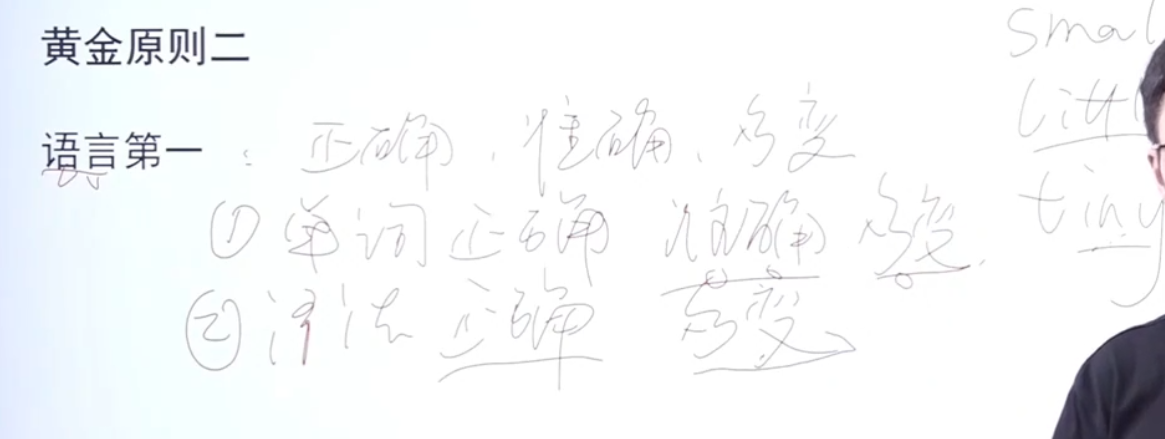 黄金原则二
语言第一：正确、准确、多变
① 单词正确 准确 多变
② 语法 正确 多变
small
tiny